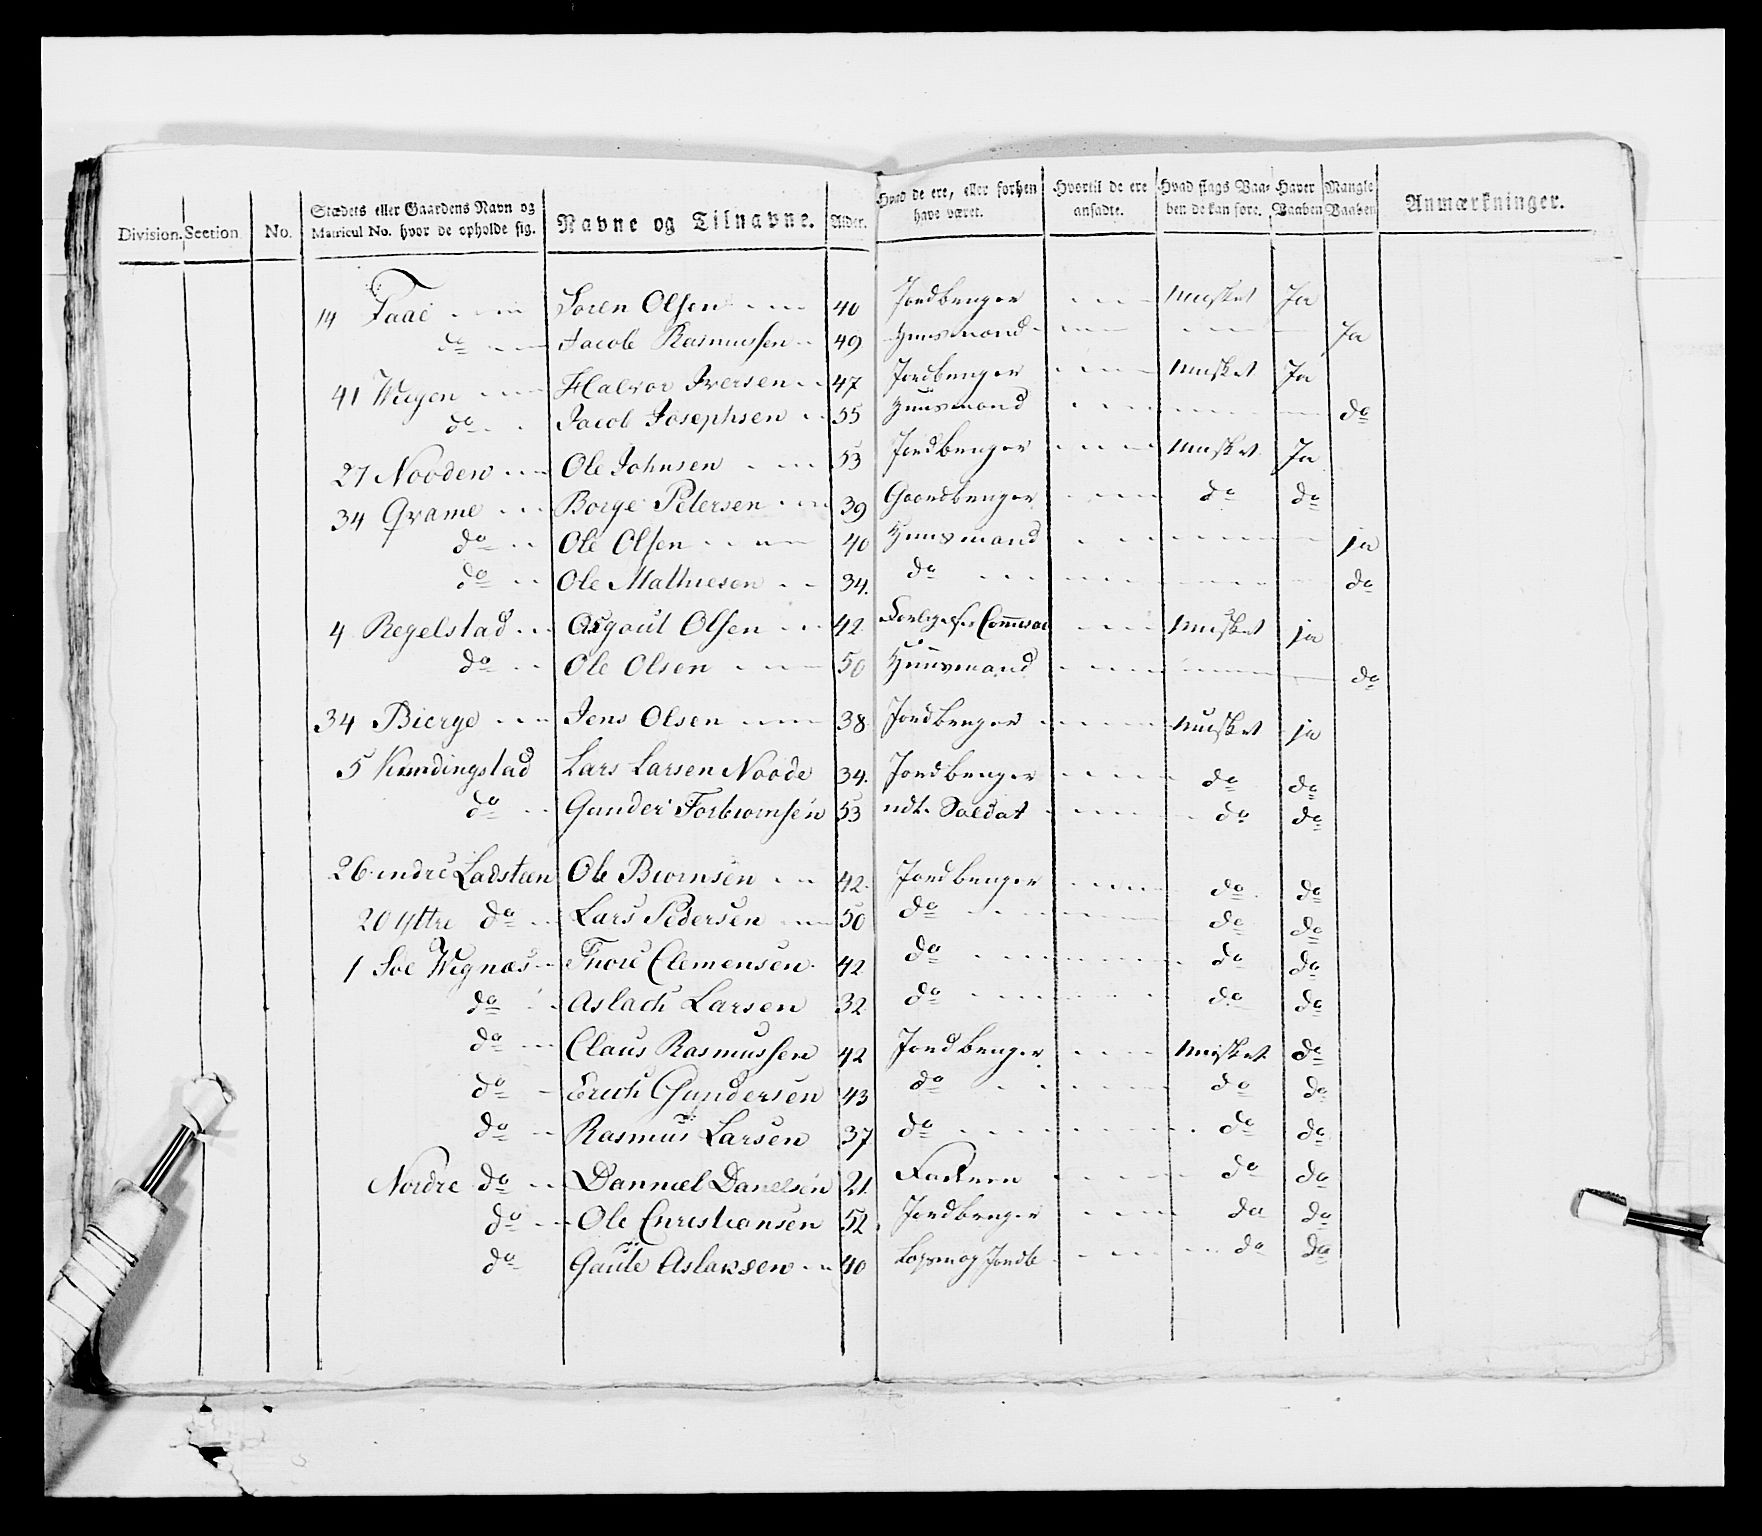 Division. Section No. Stædets eller Gaardens Navn og Matricul No. hvor de opholde sig. Navne og Tilnavne. Alder. Hvad de ere, eller forhen have været. Hvortil de ere ansadte. Hvad slags Vaaben de kan føre. Haver Vaaben Mangle Vaaben Anmærkninger.
14 Faae Soren Olsen 40 Jordbruger Musket Ja
do Jacob Rasmussen 49 Huusmand Ja
41 Wiigen Halvor Iversen 47 Jordbruger Musket Ja
do Jacob Josephsen 55 Huusmand do
27 Nooden Ole Johnsen 53 Jordbruger Musket Ja
34 Qvame Borge Petersen 39 Gaardbruger do do
do Ole Olsen 40 Huusmand ja
do Ole Mathiesen 34. do do
4 Regelstad Asgout Olsen 42 Musket ja
do Ole Olsen 50 Huusmand do
34 Bierge Jens Olsen 38 Jordbruger Musket ja
5 Kundingstad Lars Larsen Noode 34. Jordbruger do do
do Gunder Torbiornsen 53 udt. Soldat do do
26 indre Ladsteen Ole Biornsen 42. Jordbruger do do
20 Yttre do Lars Pedersen 50 do do do
1 Soe Wignæs Thore Clemensen 42 do do do
do Aslach Larsen 32 do do do
do Claus Rasmussen 42 Jordbruger Musket do
do Erich Gundersen 43 do do do
do Rasmus Larsen 37 do do do
Nordre do Danniel Danelsen 21. do do
do Ole Christiansen 52. Jordbruger do do
do Gaute Aslaksen 40 do do